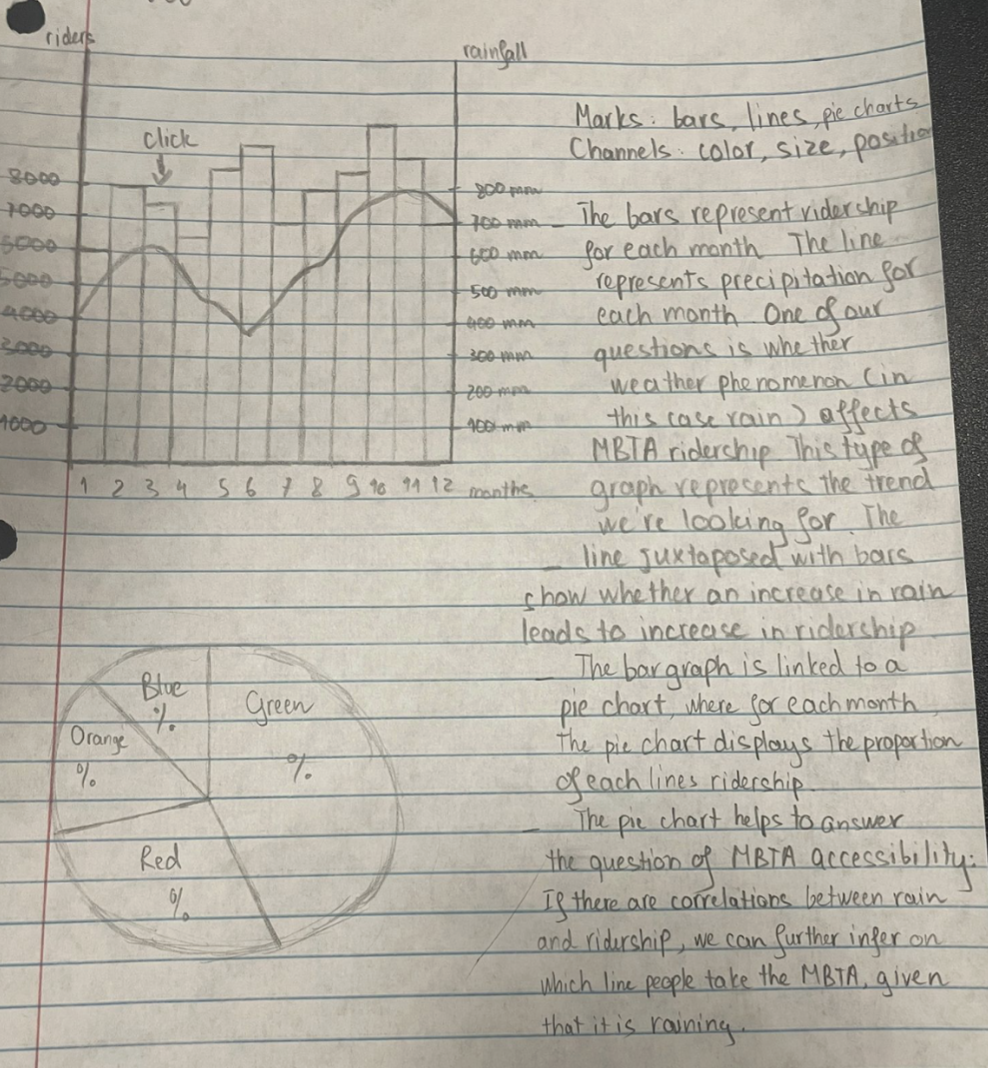 riders
rainfall
Click
8000
7000
6000
5000
4000
3000
2000
1000
800 mm
700 mm
600 mm
500 mm
400 mm
300 mm
200 mm
100 mm
1 2 3 4 5 6 7 8 9 10 11 12 months
Marks: bars, lines, pie charts
Channels: color, size, position
– The bars represent ridership
for each month The line
represents precipitation for
each month One of our
questions is whether
weather phenomenon (in
this case rain) affects
MBTA ridership This type of
graph represents the trend
we're looking for. The
– line juxtaposed with bars
show whether an increase in rain
leads to increase in ridership
– The bar graph is linked to a
pie chart, where for each month
the pie chart displays the proportion
of each lines ridership.
– The pie chart helps to answer
the question of MBTA accessibility:
If there are correlations between rain
and ridership, we can further infer on
which line people take the MBTA, given
that it is raining.
Blue
%
Green
%
Orange
%
Red
%